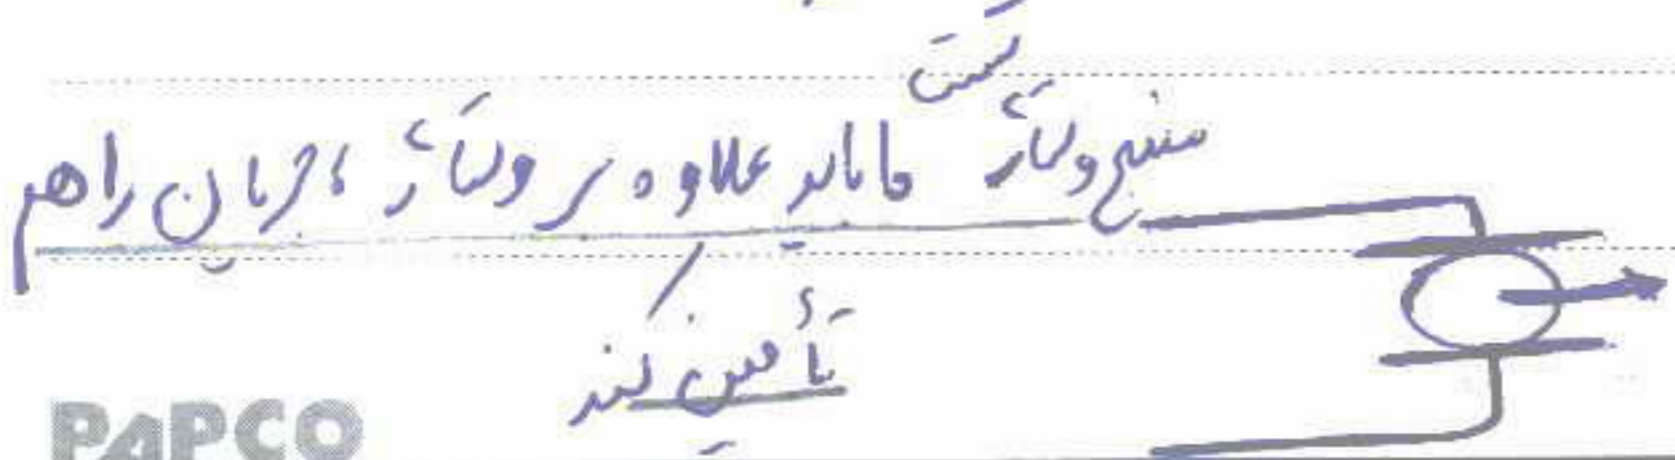 منبع ولتاژ ما باید علاوه بر ولتاژ ، جریان را هم
تأمین کند
PAPCO